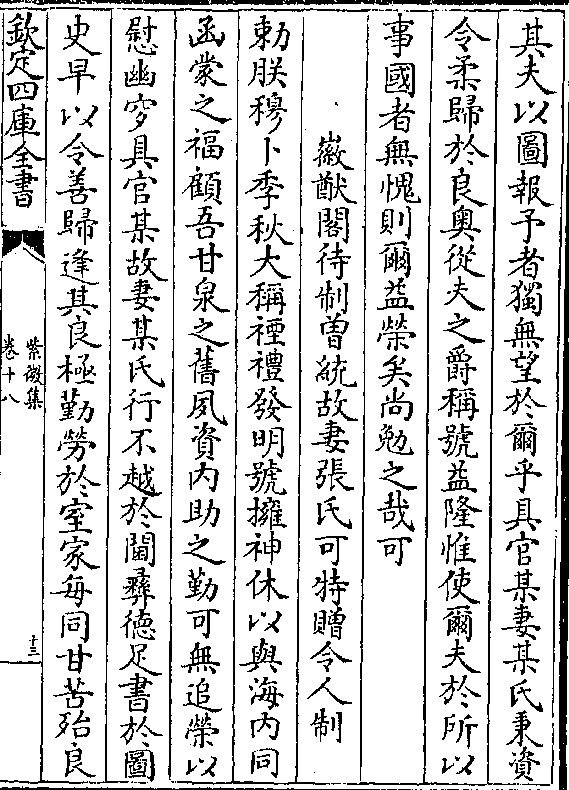 其夫以圖報予者獨無望於爾乎具官某妻某氏秉資
令柔歸於良奥從夫之爵稱號益隆惟使爾夫於所以
事國者無愧則爾益榮矣尚勉之哉可
徽猷閣待制曽統故妻張氏可特贈令人制
勅朕穆卜季秋大稱禋禮發明號擁神休以與海内同
函蒙之福顧吾甘泉之舊夙資内助之勤可無追榮以
慰幽穸具官某故妻某氏行不越於閫彞德足書於圖
史早以令善歸逢其良極勤勞於室家每同甘苦殆良
欽定四庫全書
紫微集
卷十八
十三